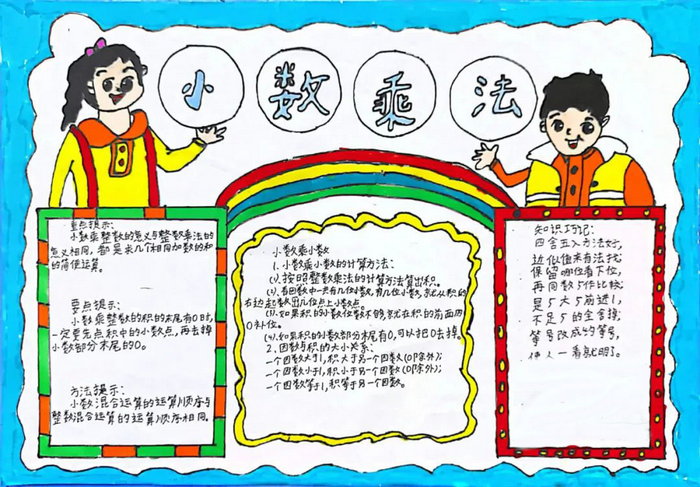 小数乘法
重点提示:
小数乘整数的意义与整数乘法的
意义相同,都是求几个相同加数的和
的简便运算。
要点提示:
小数乘整数的积的末尾有0时,
一定要先点积中的小数点,再去掉
小数部分末尾的0。
方法提示:
小数混合运算的运算顺序与
整数混合运算的运算顺序相同。
小数乘小数
1、小数乘小数的计算方法:
(1).按照整数乘法的计算方法算出积。
(2).看因数中一共有几位小数,有几位小数,就从积的
右边起数出几位点上小数点。
(3).如果积的小数位数不够,就在积的前面用
0补位。
(4).如果积的小数部分末尾有0,可以把0去掉。
2、因数与积的大小关系:
一个因数大于1,积大于另一个因数(0除外);
一个因数小于1,积小于另一个因数(0除外);
一个因数等于1,积等于另一个因数。
知识巧记:
四舍五入方法好,
近似值来有法找;
保留哪位看下位,
再同数5作比较;
是5大5前进1,
不足5的全舍掉;
等号改成约等号,
使人一看就明了。